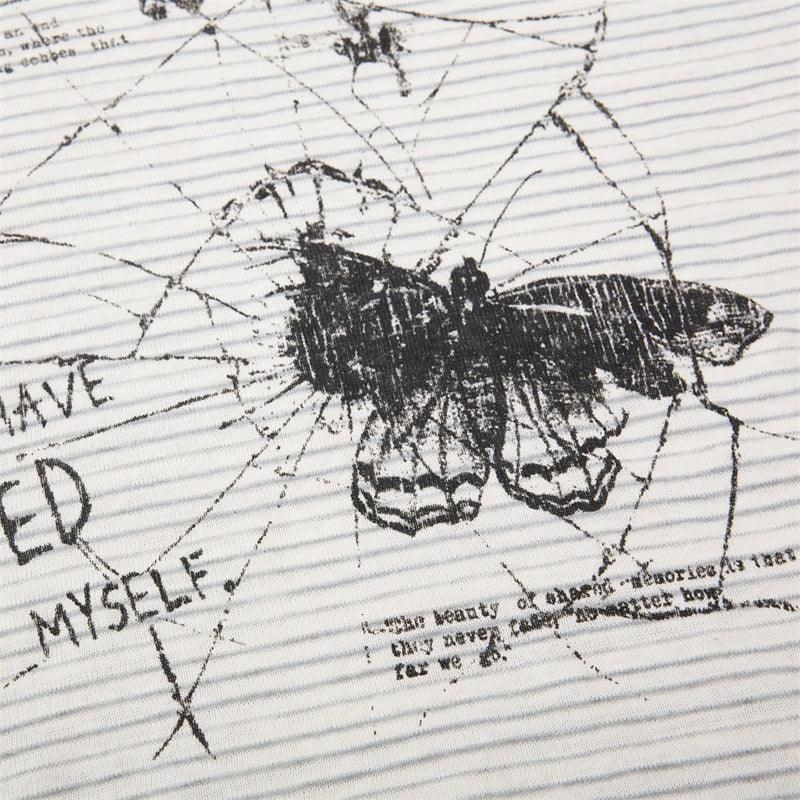 an and
where the
echoes that
HAVE
ED
MYSELF.
The beauty of shared memories is that
they never fade, no matter how
far we go.